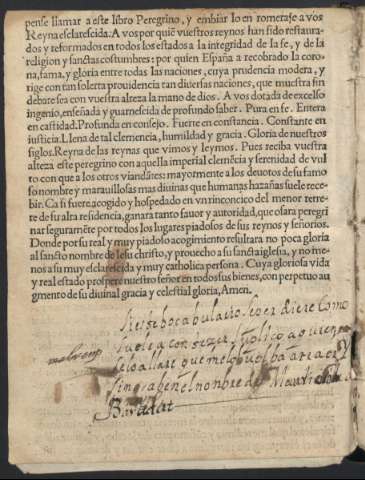 pense llamar a este libro Peregrino, y embiar lo en rometaje a vos
Reyna esclarescida. A vos por quiē vuestros reynos han sido restaura-
dos y reformados en todos los estados a la integridad de la fe, y de la
religion y sanctas costumbres: por quien España a recobrado la coro-
na, fama, y gloria entre todas las naciones, cuya prudencia modera, y
rige con tan solerta prouidencia tan diuersas naciones, que muestra sin
debate sea con vuestra alteza la mano de dios. A vos dotada de excelso
ingenio, enseñada y guarnescida de profundo saber. Pura en fe. Entera
en castidad. Profunda en consejo. Fuerte en constancia. Constante en
iusticia. Llena de tal clemencia, humildad y gracia. Gloria de nuestros
siglos. Reyna de las reynas que vimos y leymos. Pues reciba vuestra
alteza este peregrino con aquella imperial clemēcia y serenidad de vul
to con que a los otros viandātes: mayormente a los deuotos de su famo
so nombre y marauillosas mas diuinas que humanas hazañas suele rece-
bir. Ca si fuere acogido y hospedado en vn rinconcico del menor retre-
te de su alta residencia, ganara tanto fauor y autoridad, que osara peregri
nar seguramēte por todos los lugares piadosos de sus reynos y señorios.
Donde por su real y muy piadoso acogimiento resultara no poca gloria
al sancto nombre de Iesu christo, y prouecho a su sancta iglesia, y no me-
nos a su muy esclarescida y muy catholica persona. Cuya gloriosa vida
y real estado prospere nuestro señor en todos sus bienes, con perpetuo au
gmento de su diuinal gracia y celestial gloria, Amen.
Si este bocabulario se perdiere Como
suele acontezer suplico a quien
se lo allare que me lo buelba
el nombre de
Baradat